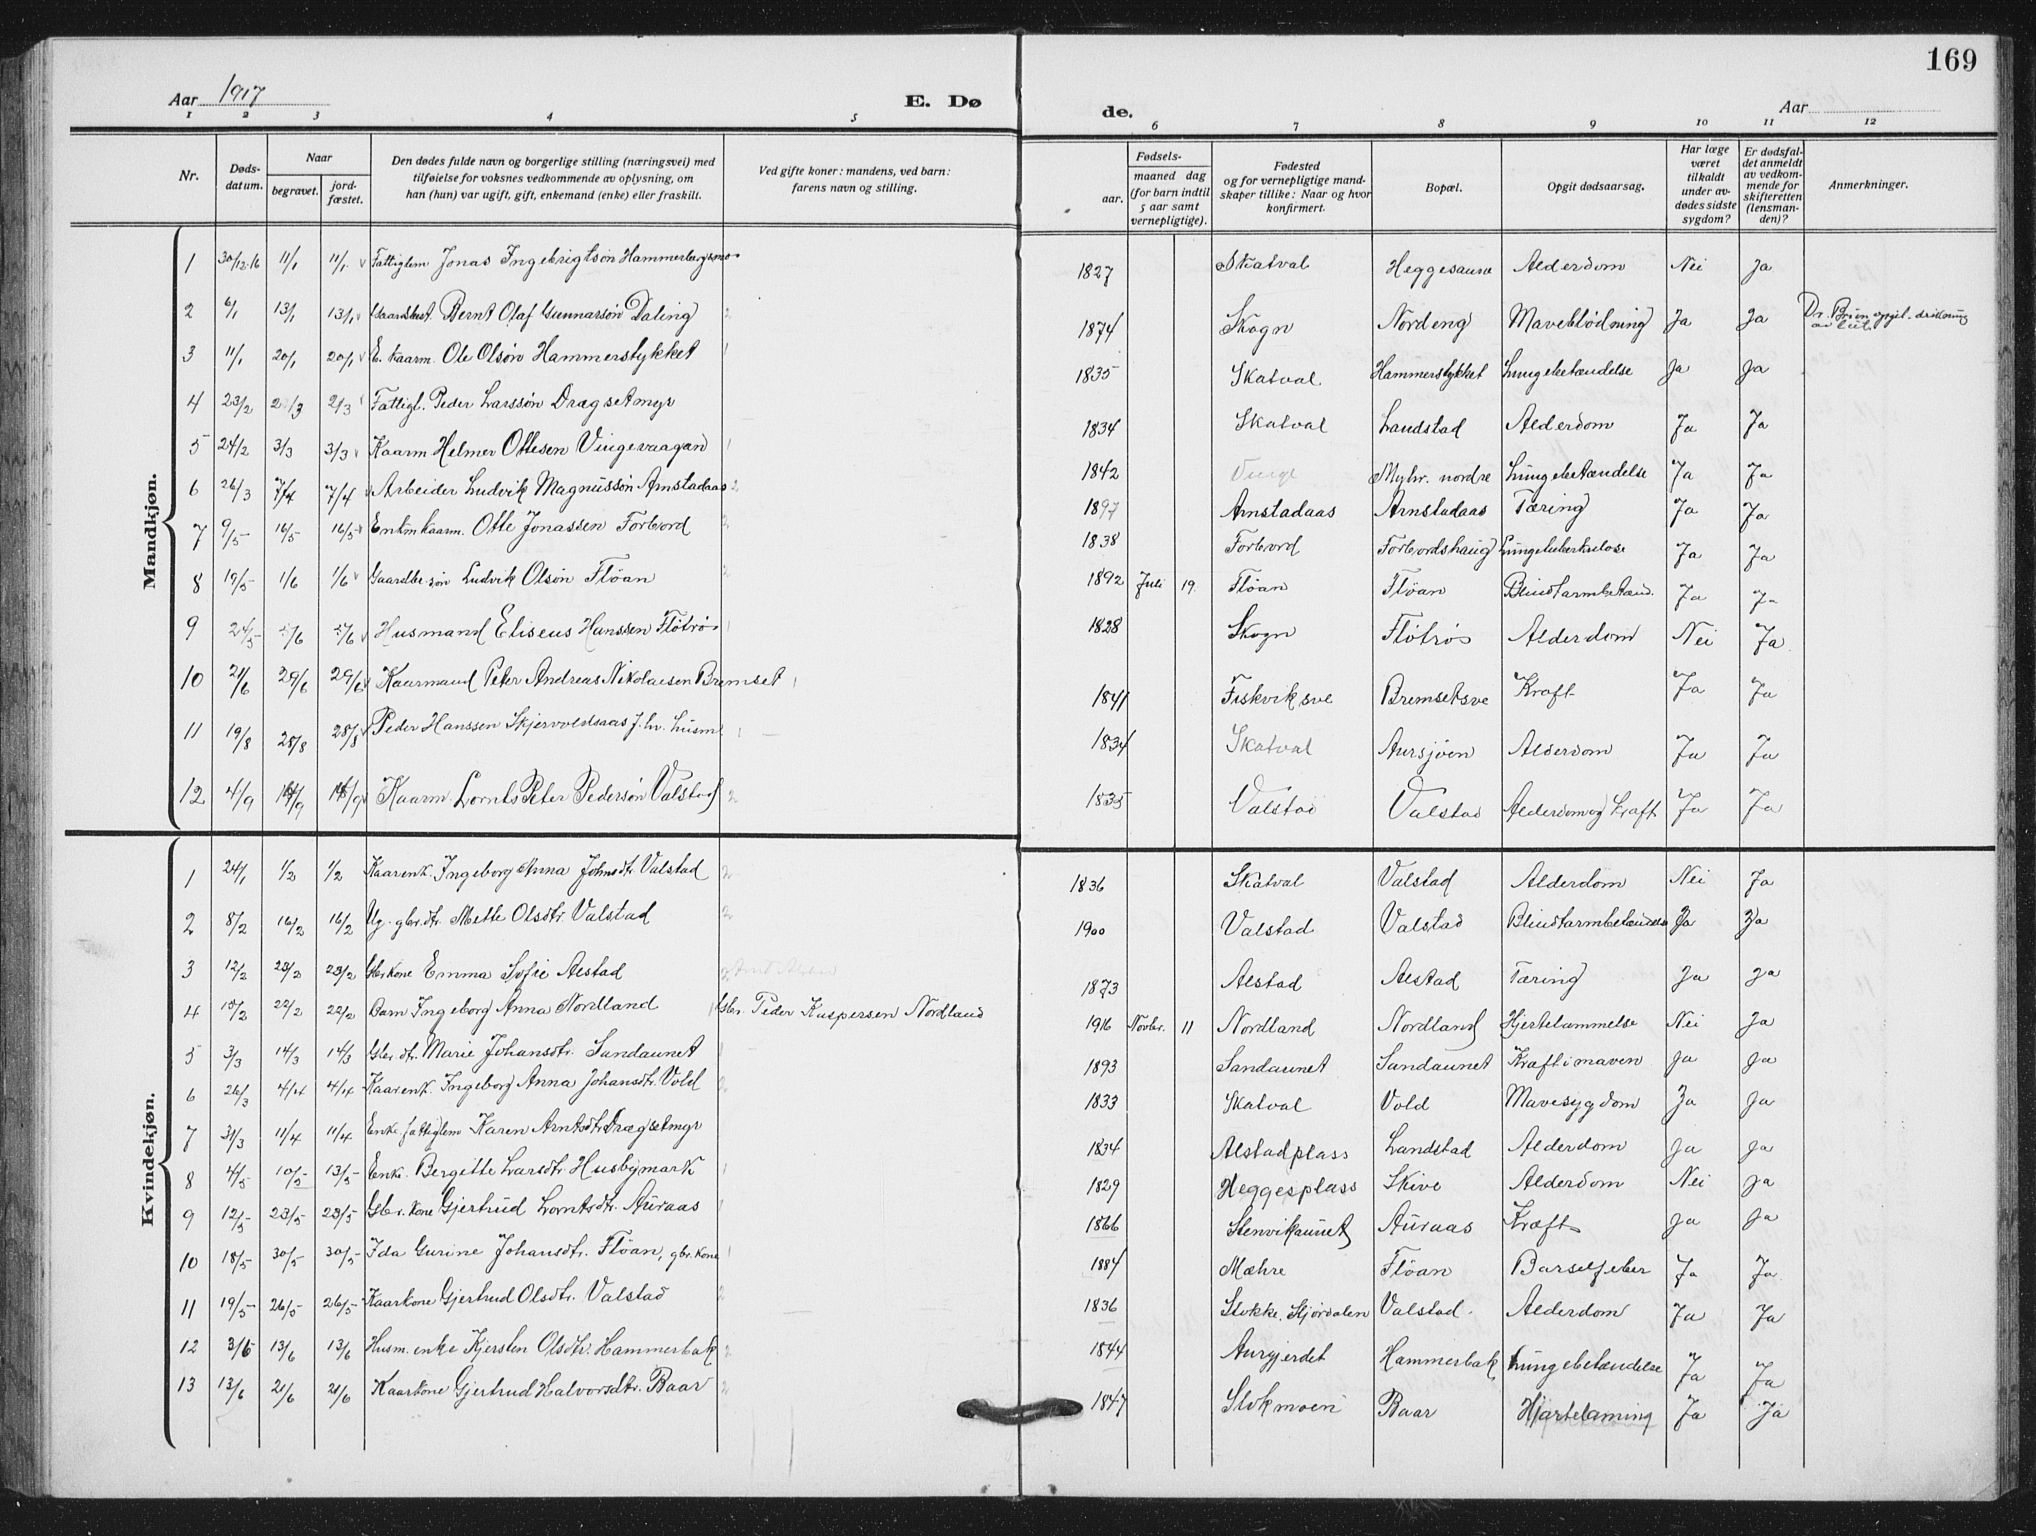 169
Aar 1917
E. Dø
de.
Aar
1 2 3 4 5 6 7 8 9 10 11 12
Nr.
Døds-
datum.
Naar
begravet.
jord-
fæstet.
Den dødes fulde navn og borgerlige stilling (næringsvei) med
tilføielse for voksnes vedkommende av oplysning, om
han (hun) var ugift, gift, enkemand (enke) eller fraskilt.
Ved gifte koner: mandens, ved barn:
farens navn og stilling.
Fødsels-
aar.
maaned dag
(for barn indtil
5 aar samt
vernepligtige).
Fødested
og for vernepligtige mand-
skaper tillike: Naar og hvor
konfirmert.
Bopæl.
Opgit dødsaarsag.
Har læge
været
tilkaldt
under av-
dødes sidste
sygdom?
Er dødsfal-
det anmeldt
av vedkom-
mende for
skifteretten
(lensman-
den)?
Anmerkninger.
Mandkjøn.
1 30/12.16 11/1 11/1 Fattiglem Jonas Ingebrigtsøn Hammerbergsmo 1827 Skatval Heggesaune Alderdom Nei Ja
2 6/1 13/1 13/1 Bernt Olaf Gunnarsøn Daling 1874 Skogn Nordeng Maveblødning Ja Ja Dr. opgit drikning av
3 11/1 20/1 20/1 E. Kaarm. Ole Olsøn Hammerstykket 1835 Skatval Hammerstykket Lungebetændelse Ja Ja
4 23/2 3 2/3 Fattigl. Peder Larssøn Drægsetmyr 1834 Skatval Landstad Alderdom Ja Ja
5 24/2 3/3 3/3 Kaarm Helmer Ottesen Vingevaagan 1842 Vinge Myhr. nordre Lungebetændelse Ja Ja
6 26/3 7/4 7/4 Arbeider Ludvik Magnussøn Arnstadaas 1897 Arnstadaas Arnstadaas Tæring Ja Ja
7 9/5 16/5 16/5 Enkm kaarm. Otte Jonassen Forbord 1838 Forbord Forbordshaug Lungetuberkulose Ja Ja
8 19/5 1/6 1/6 Gaardbr. søn Ludvik Olsøn Fløan 1892 Juli 19. Fløan Fløan Blindtarmbetænd. Ja Ja
9 24/5 /6 /6 Husmand Eliseus Hanssen Fløtrøs 1828 Skogn Fløtrøs Alderdom Nei Ja
10 21/6 29/6 29/6 Kaarmand Peter Andreas Nikolaisen Bremset 1841 Fiskviksve Bremsetsve Kræft Ja Ja
11 19/8 28/8 28/8 Peder Hanssen Skjervoldsaas f. hv. husm 1834 Skatval Aursjøen Alderdom Ja Ja
12 4/9 14/9 14/9 Kaarm. Lornts Peter Pedersøn Valstad 1835 Valstad Valstad Alderdom og kræft Ja Ja
Kvindekjøn.
1 24/1 1/2 1/2 Kaarenk. Ingeborg Anna Johnsdtr. Valstad 1836 Skatval Valstad Alderdom Nei Ja
2 8/2 16/2 16/2 Ug. gbr.dtr. Mette Olsdtr. Valstad 1900 Valstad Valstad Blindtarmbetændelse Ja Ja
3 12/2 23/2 23/2 Gbr kone Emma Sofie Alstad 1873 Alstad Alstad Tæring Ja Ja
4 15/2 22/2 22/2 Barn Ingeborg Anna Nordland Gbr. Peder Kaspersen Nordland 1916 Novbr. 11 Nordland Nordland Hjertelammelse Nei Ja
5 3/3 14/3 14/3 Gbr. dtr. Marie Johansdtr. Sandaunet 1893 Sandaunet Sandaunet Kræft i maven Ja Ja
6 26/3 4/4 4/4 Kaarenk. Ingeborg Anna Johansdtr. Vold 1833 Skatval Vold Mavesygdom Ja Ja
7 31/3 11/4 11/4 Enke fattiglem Karen Arntsdtr. Drægsetmyr 1834 Alstadplass Landstad Alderdom Ja Ja
8 4/5 10/5 13/5 Enke. Bergitte Larsdtr. Husbymark 1829 Heggesplass Skive Alderdom Nei Ja
9 12/5 23/5 23/5 Gbr. kone Gjertrud Lorntsdtr. Auraas 1866 Stenvikaunet Auraas Kræft Ja Ja
10 18/5 30/5 30/5 Ida Gurine Johansdtr. Fløan, gbr. kone 1884 Mæhre Fløan Barselfeber Ja Ja
11 19/5 26/5 26/5 Kaarkone Gjertrud Olsdtr. Valstad 1836 Stokke. Stjørdalen Valstad. Alderdom Ja Ja
12 3/6 13/6 13/6 Husm. enke Kjersten Olsdtr. Hammerbak 1844 Aurgjerdet Hammerbak Lungebetændelse Ja Ja
13 13/6 21/6 21/6 Kaarkone Gjertrud Halvorsdtr. Baar 1847 Stokmoen Baar Hjertelamming Ja Ja